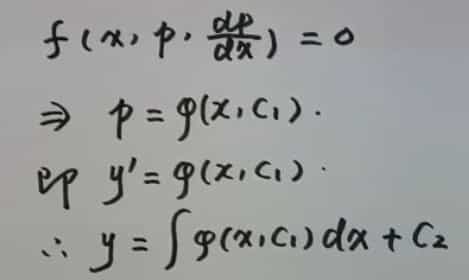 f(x, p, dp/dx) = 0
⇒ p = φ(x, C₁).
即 y' = φ(x, C₁).
∴ y = ∫φ(x, C₁)dx + C₂